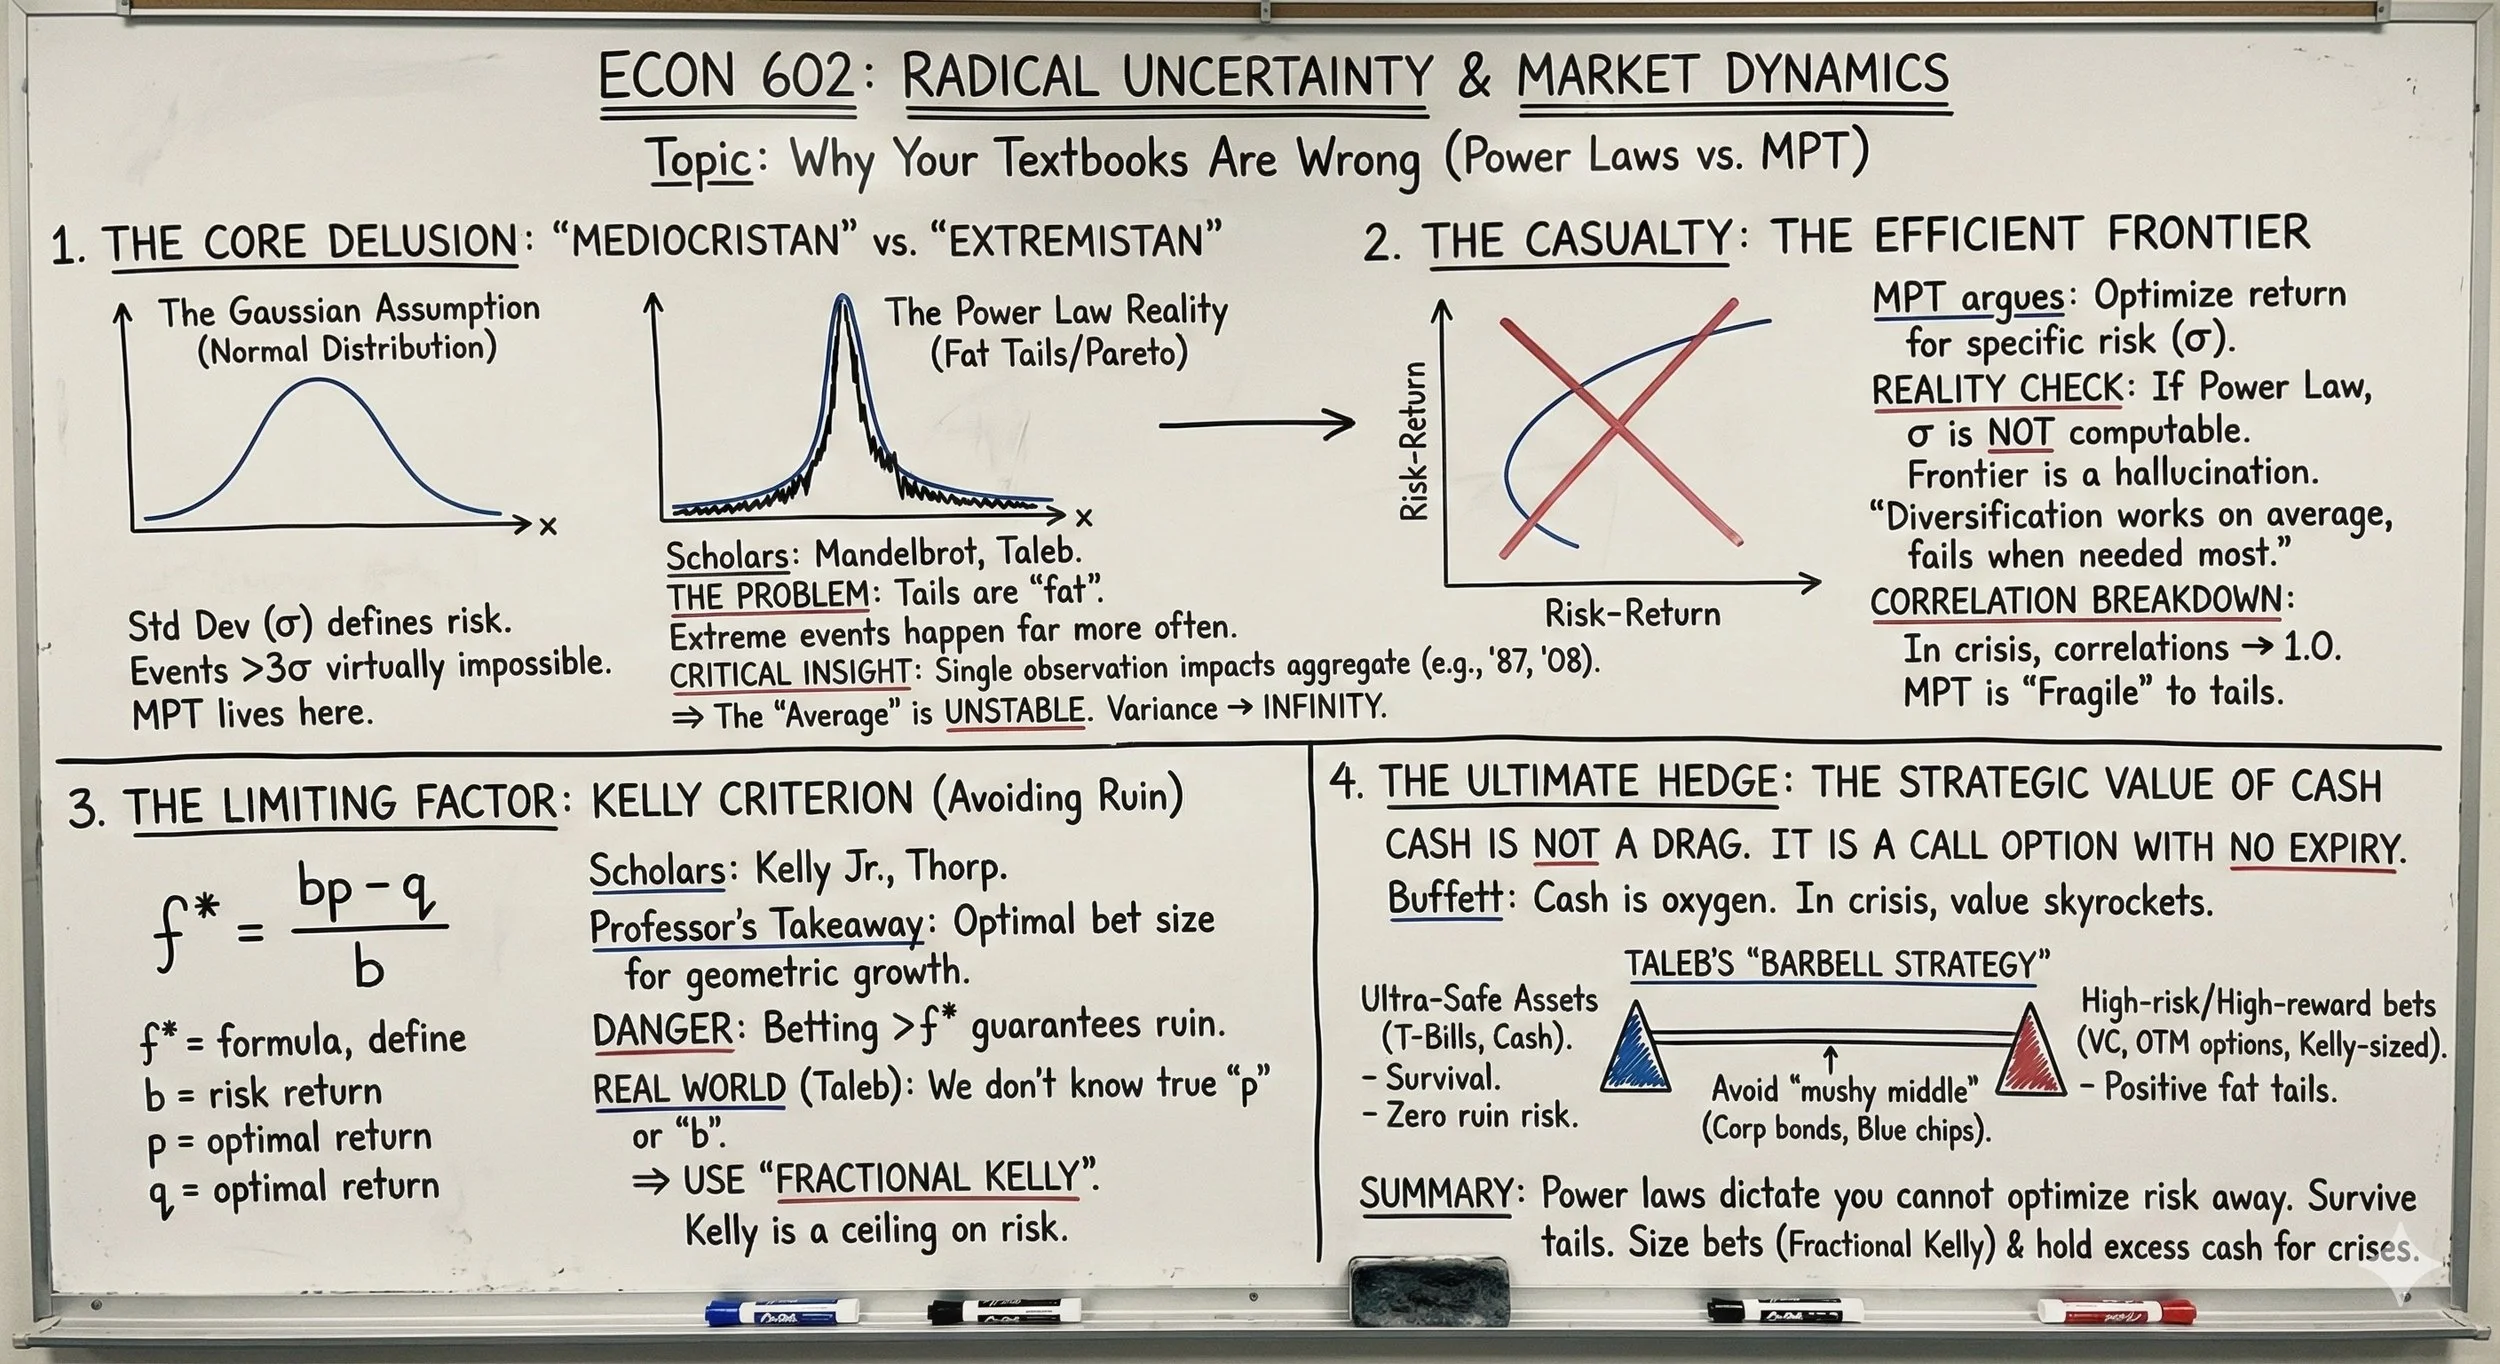 ECON 602: RADICAL UNCERTAINTY & MARKET DYNAMICS
Topic: Why Your Textbooks Are Wrong (Power Laws vs. MPT)
1. THE CORE DELUSION: “MEDIOCRISTAN” vs. “EXTREMISTAN”
The Gaussian Assumption
(Normal Distribution)
x
Std Dev (σ) defines risk.
Events >3σ virtually impossible.
MPT lives here.
The Power Law Reality
(Fat Tails/Pareto)
x
Scholars: Mandelbrot, Taleb.
THE PROBLEM: Tails are “fat”.
Extreme events happen far more often.
CRITICAL INSIGHT: Single observation impacts aggregate (e.g., '87, '08).
⇒ The “Average” is UNSTABLE. Variance → INFINITY.
2. THE CASUALTY: THE EFFICIENT FRONTIER
Risk-Return
Risk-Return
MPT argues: Optimize return
for specific risk (σ).
REALITY CHECK: If Power Law,
σ is NOT computable.
Frontier is a hallucination.
“Diversification works on average,
fails when needed most.”
CORRELATION BREAKDOWN:
In crisis, correlations → 1.0.
MPT is “Fragile” to tails.
3. THE LIMITING FACTOR: KELLY CRITERION (Avoiding Ruin)
f* = bp - q
b
f* = formula, define
b = risk return
p = optimal return
q = optimal return
Scholars: Kelly Jr., Thorp.
Professor's Takeaway: Optimal bet size
for geometric growth.
DANGER: Betting >f* guarantees ruin.
REAL WORLD (Taleb): We don't know true “p”
or “b”.
⇒ USE “FRACTIONAL KELLY”.
Kelly is a ceiling on risk.
4. THE ULTIMATE HEDGE: THE STRATEGIC VALUE OF CASH
CASH IS NOT A DRAG. IT IS A CALL OPTION WITH NO EXPIRY.
Buffett: Cash is oxygen. In crisis, value skyrockets.
TALEB'S “BARBELL STRATEGY”
Ultra-Safe Assets
(T-Bills, Cash).
- Survival.
- Zero ruin risk.
Avoid “mushy middle”
(Corp bonds, Blue chips).
High-risk/High-reward bets
(VC, OTM options, Kelly-sized).
- Positive fat tails.
SUMMARY: Power laws dictate you cannot optimize risk away. Survive
tails. Size bets (Fractional Kelly) & hold excess cash for crises.